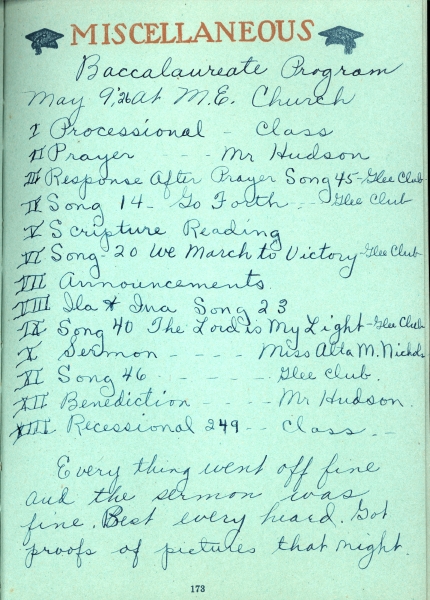 MISCELLANEOUS
Baccalaureate Program
May 9,'26 At M.E. Church
I Processional - Class
II Prayer - - - Mr Hudson
III Response After Prayer Song 45-Glee Club
IV Song 14- Go Forth - - Glee Club
V Scripture Reading
VI Song-20 We March to Victory-Glee Club-
VII Announcements
VIII Ila & Ina Song 23
IX Song 40 The Lord is My Light-Glee Club
X Sermon - - - - Miss Alta M. Nichols
XI Song 46 - - - - Glee Club.
XII Benediction - - - - Mr Hudson.
XIII Recessional 249 -- Class - -
Every thing went off fine
and the sermon was
fine. Best every heard. Got
proofs of pictures that night.
173